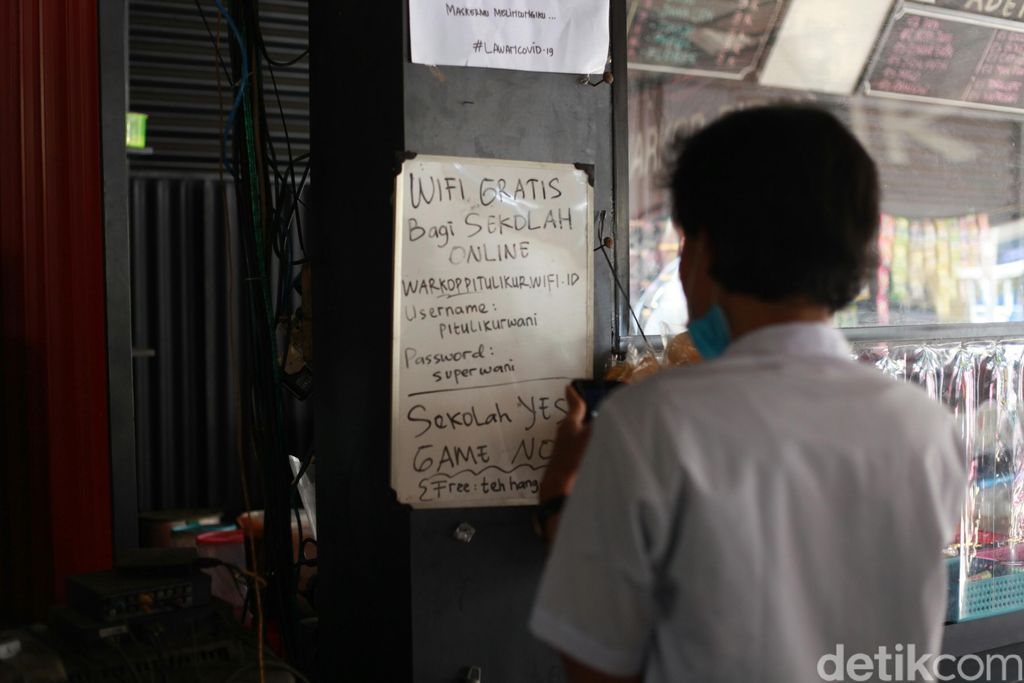 MASKERMU MELINDUNGIKU...
#LAWANCOVID-19
WIFI GRATIS
Bagi SEKOLAH
ONLINE
WARKOPPITULIKURWIFI.ID
Username:
pitulikurwani
Password:
superwani
Sekolah YES
GAME NO
Free: teh hang
detikcom